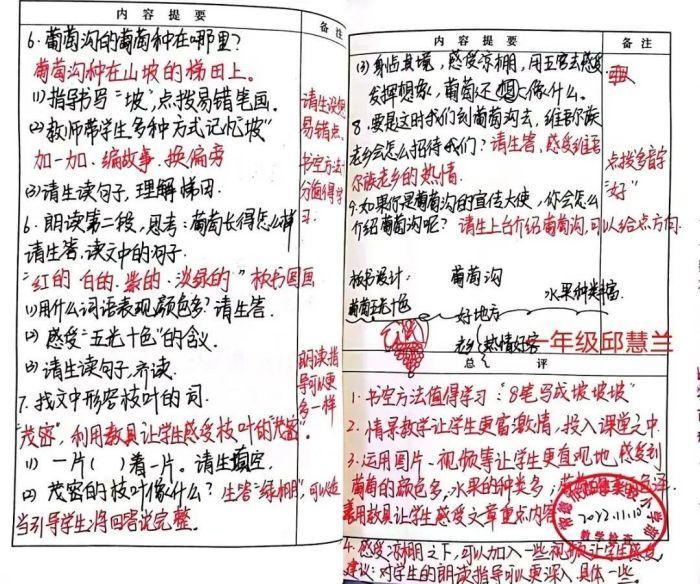 内容提要
备注
6.葡萄沟的葡萄种在哪里?
葡萄沟种在山坡的梯田上。
(1)指导书写“坡”,点拨易错笔画。
(2)教师带学生多种方式记忆坡”
加一加、编故事、换偏旁
(3)请生读句子,理解梯田.
6.朗读第二段,思考:葡萄长得怎么样
请生答,读文中的句子.
“红的 白的、紫的、淡绿的”板书画画
(1)用什么词语表现颜色多?请生答.
(2)感受“五光十色”的含义.
(3)请生读句子,齐读.
7.找文中形容枝叶的词.
“茂密”,利用教具让学生感受枝叶的“茂密”.
(1)一片( )着一片.请生填空.
(2)茂密的枝叶像什么?生答“绿棚”,可以适
当引导学生将回答说完整.
请生说
易错点、
书空方法
值得学
习.
朗读指
导可以更
多一样
内容提要
备注
(3)身临其境,感受凉棚,用五官去感受
发挥想象,葡萄还想像什么.
8.要是这时我们到葡萄沟去,维吾尔族
老乡会怎么招待我们?请生答,感受维吾
尔族老乡的热情.
9.如果你是葡萄沟的宣传大使,你会怎么
介绍葡萄沟呢?请生上台介绍葡萄沟,可以给点方向.
点拨多音字
“好”
板书设计:
葡萄沟
葡萄五光十色
好地方
水果种类丰富
老乡热情好客
一年级邱慧兰
总评
1.书空方法值得学习:“8笔写成坡坡坡”
2.情景教学让学生更富激情,投入课堂之中.
3.运用图片、视频等让学生更直观地感受到
葡萄的颜色多,水果的种类多;
利用教具让学生感受文章重点内容
2022.11.10
教学检查
4.感受凉棚之下,可以加入一些视频让学生感受
建议:对学生的朗读指导可以更深入、具体一些